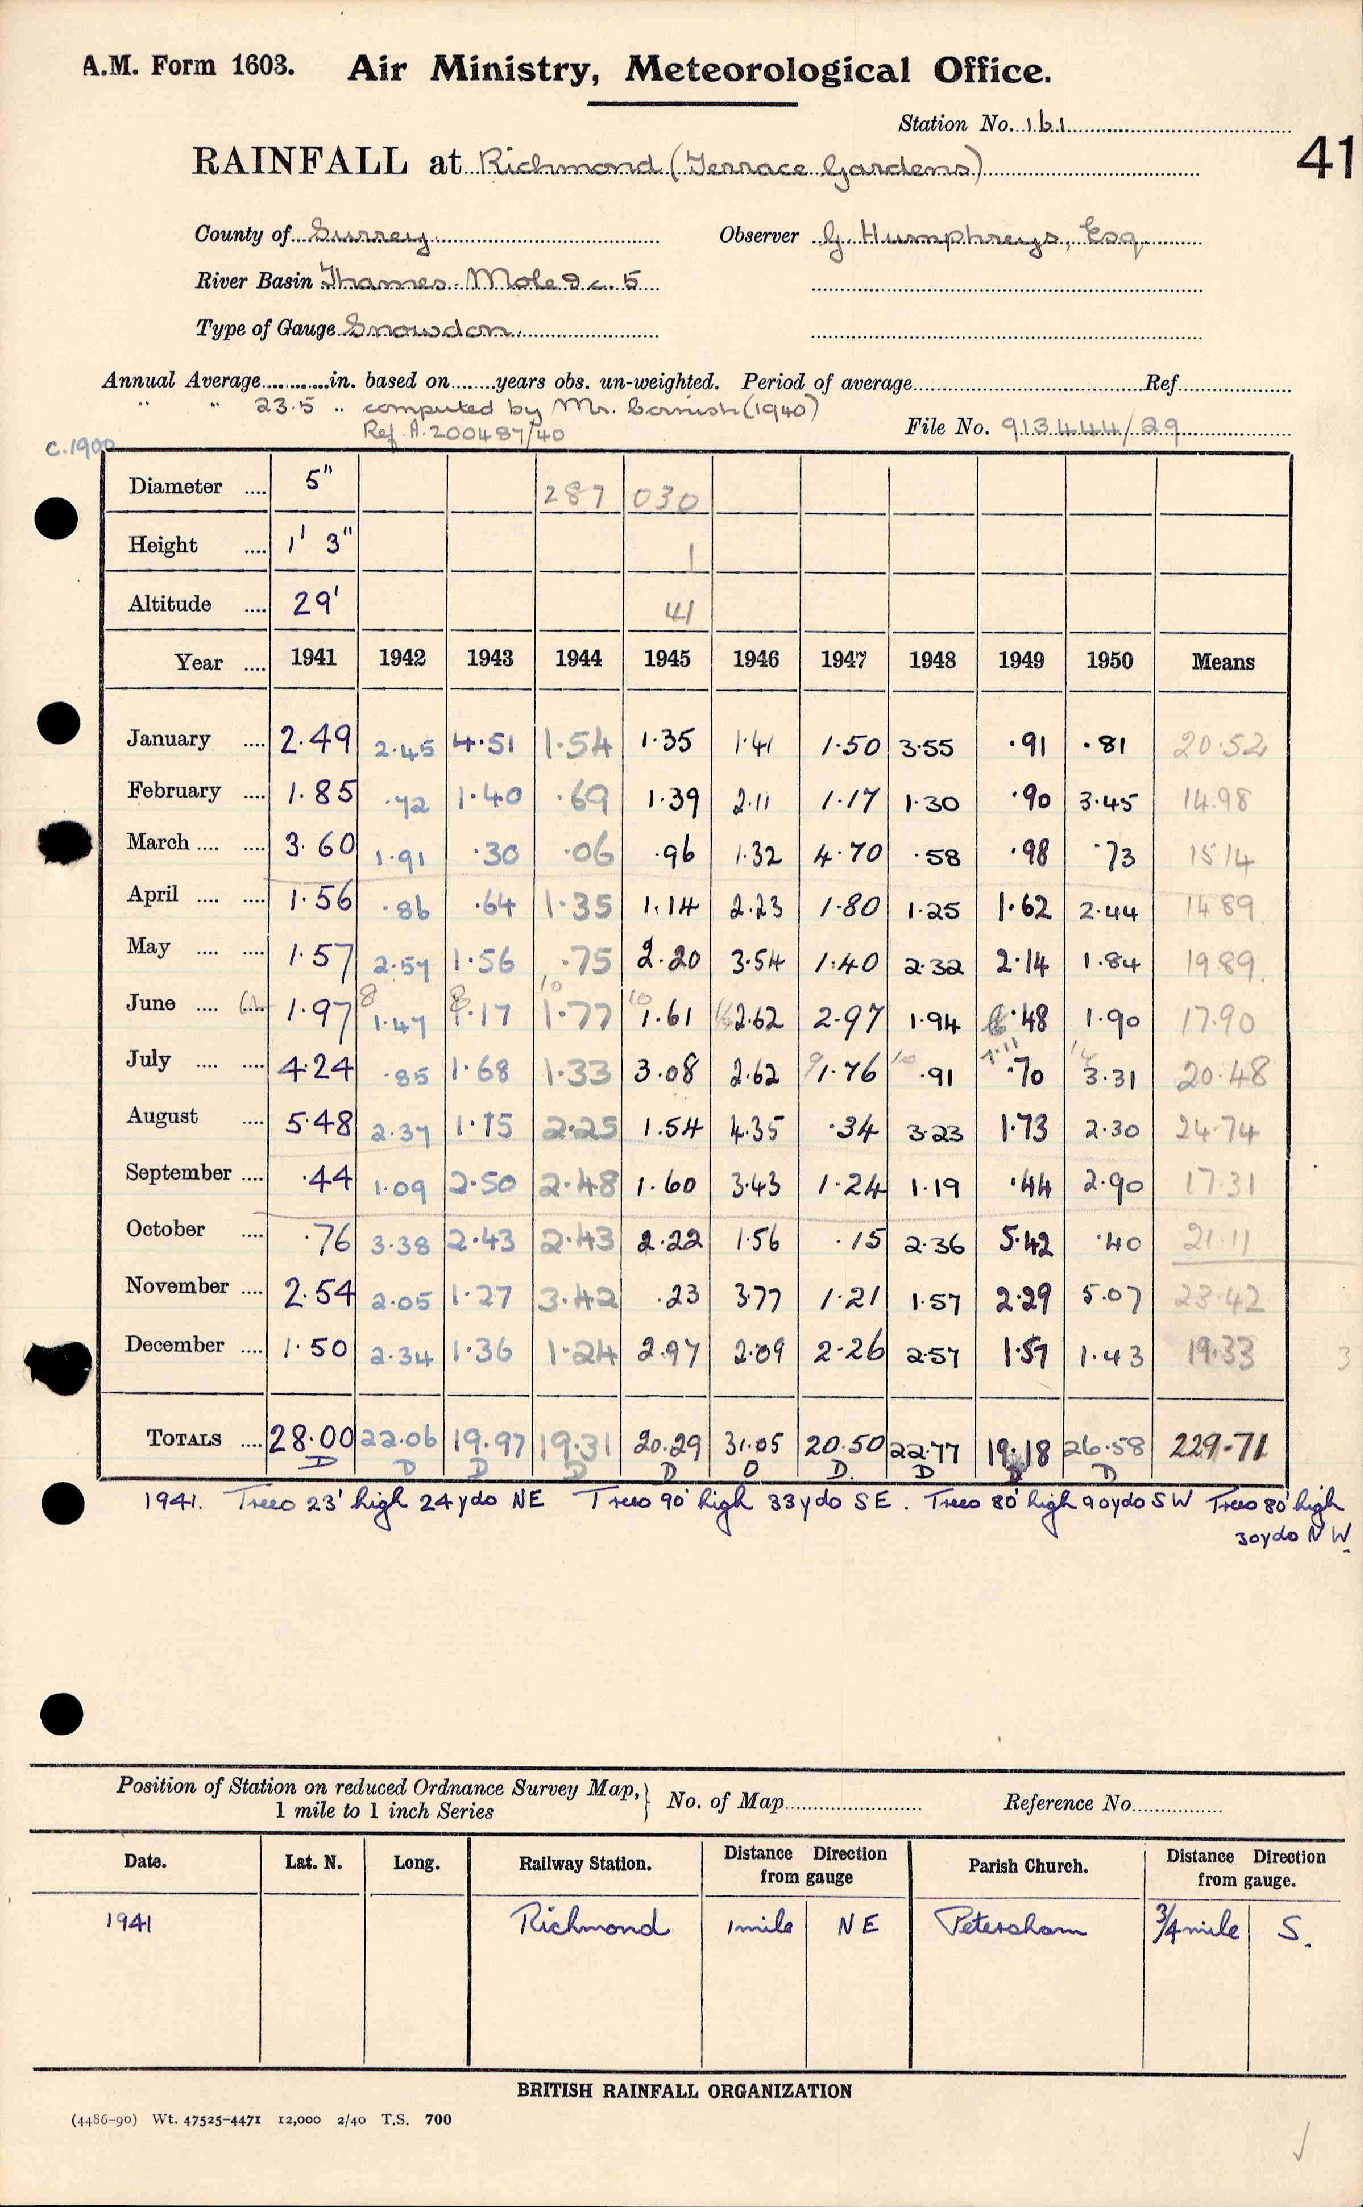 A.M. Form 1603. Air Ministry, Meteorological Office.
Station No. 161
41
RAINFALL at Richmond (Terrace Gardens)
County of Surrey Observer G. Humphreys, Esq.
River Basin Thames. Mole &c. 5
Type of Gauge Snowdon.
Annual Average............in. based on........years obs. un-weighted. Period of average........Ref........
" " 23.5 " computed by Mr. Cornish (1940)
Ref. A.200487/40
File No. 913444/29
c.1900
Diameter .... 5" 287 030
Height .... 1' 3" 1
Altitude .... 29' 41
Year .... 1941 1942 1943 1944 1945 1946 1947 1948 1949 1950 Means
January .... 2.49 2.45 4.51 1.54 1.35 1.41 1.50 3.55 .91 .81 20.52
February .... 1.85 .72 1.40 .69 1.39 2.11 1.17 1.30 .90 3.45 14.98
March .... .... 3.60 1.91 .30 .06 .96 1.32 4.70 .58 .98 .73 15.14
April .... .... 1.56 .86 .64 1.35 1.14 2.23 1.80 1.25 1.62 2.44 14.89
May .... .... 1.57 2.57 1.56 .75 2.20 3.54 1.40 2.32 2.14 1.84 19.89
June .... 1.97 8 1.47 1.17 10 1.77 10 1.61 2.62 2.97 1.94 .48 1.90 17.90
July .... .... 4.24 .85 1.68 1.33 3.08 2.62 9 1.76 10 .91 .70 14 3.31 20.48
August .... 5.48 2.37 1.15 2.25 1.54 4.35 .34 3.23 1.73 2.30 24.74
September .... .44 1.09 2.50 2.48 1.60 3.43 1.24 1.19 .44 2.90 17.31
October .... .76 3.38 2.43 2.43 2.22 1.56 .15 2.36 5.42 .40 21.11
November .... 2.54 2.05 1.27 3.42 .23 3.77 1.21 1.57 2.29 5.07 23.42
December .... 1.50 2.34 1.36 1.24 2.97 2.09 2.26 2.57 1.57 1.43 19.33 3
TOTALS .... 28.00 22.06 19.97 19.31 20.29 31.05 20.50 22.77 19.18 26.58 229.71
D D D D D D D. D D D
1941. Trees 23' high 24 yds NE Trees 90' high 33 yds SE. Trees 80' high 90 yds SW Trees 80' high
30 yds N W.
Position of Station on reduced Ordnance Survey Map, } No. of Map........ Reference No........
1 mile to 1 inch Series
Date. Lat. N. Long. Railway Station. Distance Direction from gauge Parish Church. Distance Direction from gauge.
1941 Richmond 1 mile NE Petersham 3/4 mile S.
BRITISH RAINFALL ORGANIZATION
(4486-90) Wt. 47525-4471 12,000 2/40 T.S. 700